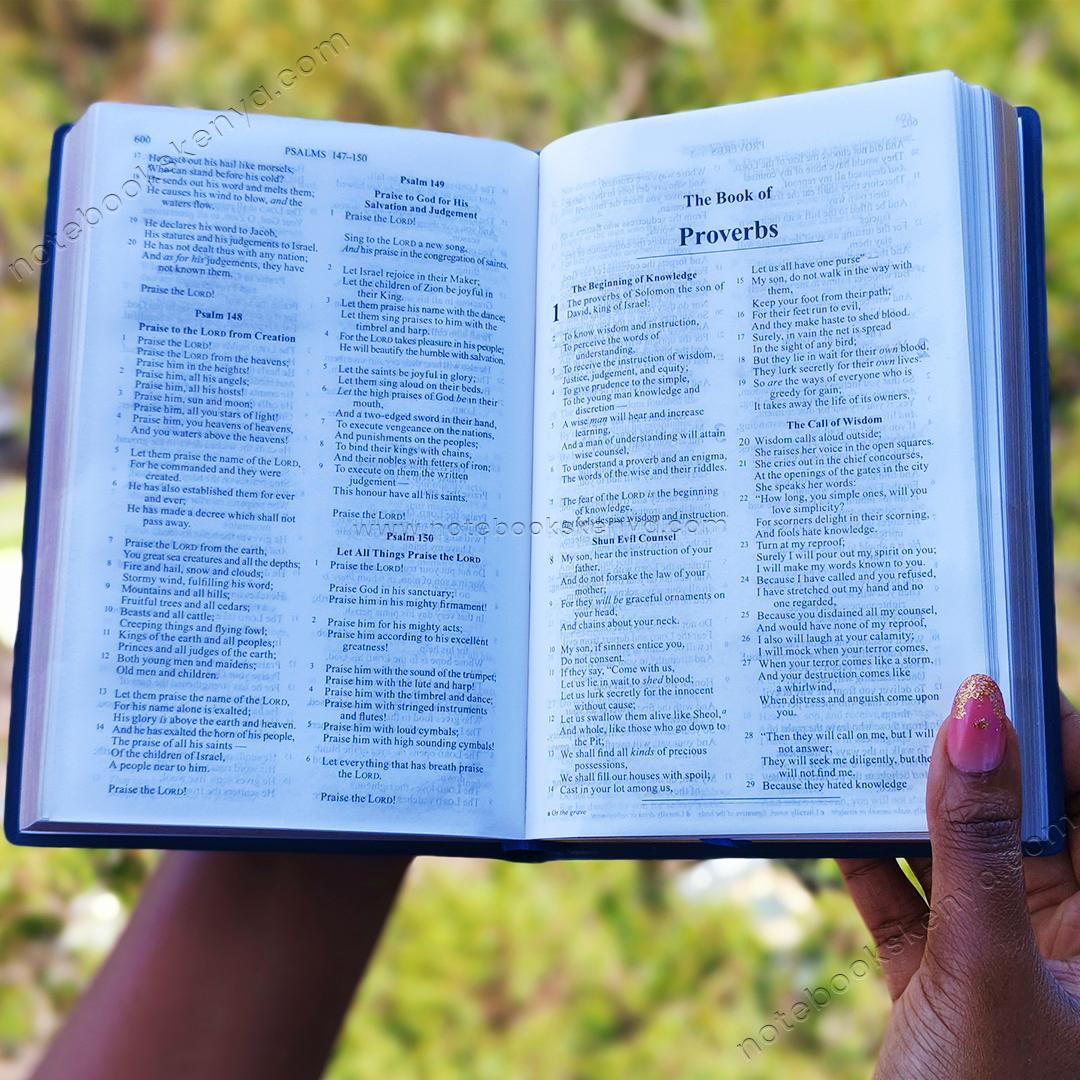 600
PSALMS 147–150
17 He casts out his hail like morsels;
Who can stand before his cold?
18 He sends out his word and melts them;
He causes his wind to blow, and the
waters flow.
19 He declares his word to Jacob,
His statutes and his judgements to Israel.
20 He has not dealt thus with any nation;
And as for his judgements, they have
not known them.
Praise the LORD!
Psalm 148
Praise to the LORD from Creation
1 Praise the LORD!
Praise the LORD from the heavens;
Praise him in the heights!
2 Praise him, all his angels;
Praise him, all his hosts!
3 Praise him, sun and moon;
Praise him, all you stars of light!
4 Praise him, you heavens of heavens,
And you waters above the heavens!
5 Let them praise the name of the LORD,
For he commanded and they were
created.
6 He has also established them for ever
and ever;
He has made a decree which shall not
pass away.
7 Praise the LORD from the earth,
You great sea creatures and all the depths;
8 Fire and hail, snow and clouds;
Stormy wind, fulfilling his word;
9 Mountains and all hills;
Fruitful trees and all cedars;
10 Beasts and all cattle;
Creeping things and flying fowl;
11 Kings of the earth and all peoples;
Princes and all judges of the earth;
12 Both young men and maidens;
Old men and children.
13 Let them praise the name of the LORD,
For his name alone is exalted;
His glory is above the earth and heaven.
14 And he has exalted the horn of his people,
The praise of all his saints —
Of the children of Israel,
A people near to him.
Praise the LORD!
Psalm 149
Praise to God for His
Salvation and Judgement
1 Praise the LORD!
Sing to the LORD a new song,
And his praise in the congregation of saints.
2 Let Israel rejoice in their Maker;
Let the children of Zion be joyful in
their King.
3 Let them praise his name with the dance;
Let them sing praises to him with the
timbrel and harp.
4 For the LORD takes pleasure in his people;
He will beautify the humble with salvation.
5 Let the saints be joyful in glory;
Let them sing aloud on their beds.
6 Let the high praises of God be in their
mouth,
And a two-edged sword in their hand,
7 To execute vengeance on the nations,
And punishments on the peoples;
8 To bind their kings with chains,
And their nobles with fetters of iron;
9 To execute on them the written
judgement —
This honour have all his saints.
Praise the LORD!
Psalm 150
Let All Things Praise the LORD
1 Praise the LORD!
Praise God in his sanctuary;
Praise him in his mighty firmament!
2 Praise him for his mighty acts;
Praise him according to his excellent
greatness!
3 Praise him with the sound of the trumpet;
Praise him with the lute and harp!
4 Praise him with the timbrel and dance;
Praise him with stringed instruments
and flutes!
5 Praise him with loud cymbals;
Praise him with high sounding cymbals!
6 Let everything that has breath praise
the LORD.
Praise the LORD!
The Book of
Proverbs
The Beginning of Knowledge
1 The proverbs of Solomon the son of
David, king of Israel:
2 To know wisdom and instruction,
To perceive the words of
understanding,
3 To receive the instruction of wisdom,
Justice, judgement, and equity;
4 To give prudence to the simple,
To the young man knowledge and
discretion —
5 A wise man will hear and increase
learning,
And a man of understanding will attain
wise counsel,
6 To understand a proverb and an enigma,
The words of the wise and their riddles.
7 The fear of the LORD is the beginning
of knowledge,
But fools despise wisdom and instruction.
Shun Evil Counsel
8 My son, hear the instruction of your
father,
And do not forsake the law of your
mother;
9 For they will be graceful ornaments on
your head,
And chains about your neck.
10 My son, if sinners entice you,
Do not consent.
11 If they say, “Come with us,
Let us lie in wait to shed blood;
Let us lurk secretly for the innocent
without cause;
12 Let us swallow them alive like Sheol,a
And whole, like those who go down to
the Pit;
13 We shall find all kinds of precious
possessions,
We shall fill our houses with spoil;
14 Cast in your lot among us,
a Or the grave
Let us all have one purse” —
15 My son, do not walk in the way with
them,
Keep your foot from their path;
16 For their feet run to evil,
And they make haste to shed blood.
17 Surely, in vain the net is spread
In the sight of any bird;
18 But they lie in wait for their own blood,
They lurk secretly for their own lives.
19 So are the ways of everyone who is
greedy for gain;
It takes away the life of its owners.
The Call of Wisdom
20 Wisdom calls aloud outside;
She raises her voice in the open squares.
21 She cries out in the chief concourses,
At the openings of the gates in the city
She speaks her words:
22 “How long, you simple ones, will you
love simplicity?
For scorners delight in their scorning,
And fools hate knowledge.
23 Turn at my reproof;
Surely I will pour out my spirit on you;
I will make my words known to you.
24 Because I have called and you refused,
I have stretched out my hand and no
one regarded,
25 Because you disdained all my counsel,
And would have none of my reproof,
26 I also will laugh at your calamity;
I will mock when your terror comes,
27 When your terror comes like a storm,
And your destruction comes like
a whirlwind,
When distress and anguish come upon
you.
28 “Then they will call on me, but I will
not answer;
They will seek me diligently, but they
will not find me.
29 Because they hated knowledge
notebookskenya.com
www.notebookskenya.com
notebookskenya.com